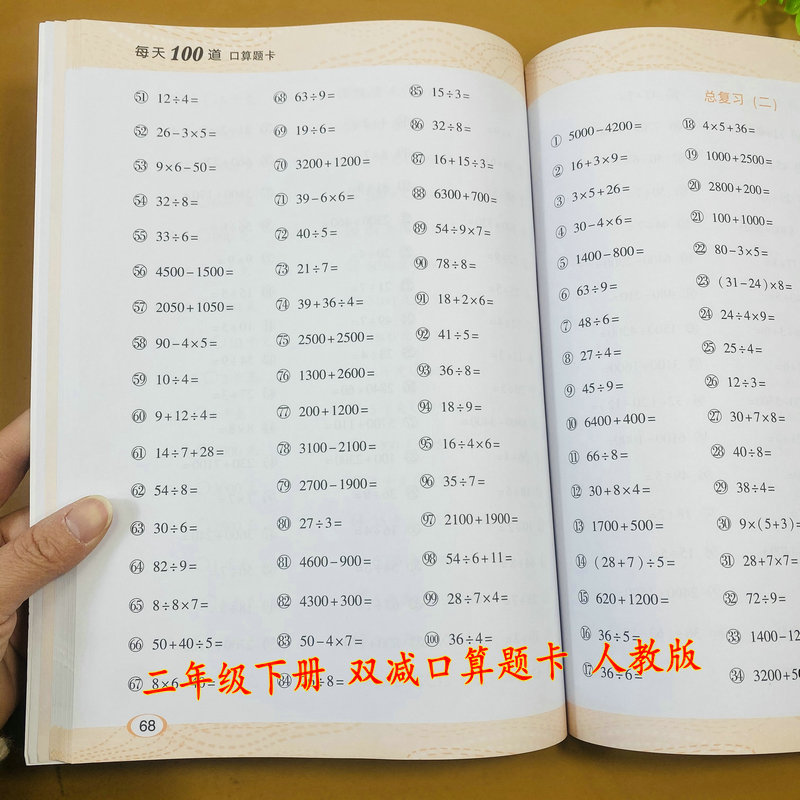 每天100道 口算题卡
51 12÷4=
52 26-3×5=
53 9×6-50=
54 32÷8=
55 33÷6=
56 4500-1500=
57 2050+1050=
58 90-4×5=
59 10÷4=
60 9+12÷4=
61 14÷7+28=
62 54÷8=
63 30÷6=
64 82÷9=
65 8÷8×7=
66 50+40÷5=
67 8×6
68 63÷9=
69 19÷6=
70 3200+1200=
71 39-6×6=
72 40÷5=
73 21÷7=
74 39+36÷4=
75 2500+2500=
76 1300+2600=
77 200+1200=
78 3100-2100=
79 2700-1900=
80 27÷3=
81 4600-900=
82 4300+300=
83 50-4×7=
84 ÷8=
85 15÷3=
86 32÷8=
87 16+15÷3=
88 6300+700=
89 54÷9×7=
90 78÷8=
91 18+2×6=
92 41÷5=
93 36÷8=
94 18÷9=
95 16÷4×6=
96 35÷7=
97 2100+1900=
98 54÷6+11=
99 28÷7×4=
100 36÷4=
68
总复习（二）
① 5000-4200=
② 16+3×9=
③ 3×5+26=
④ 30-4×6=
⑤ 1400-800=
⑥ 63÷9=
⑦ 48÷6=
⑧ 27÷4=
⑨ 45÷9=
⑩ 6400+400=
⑪ 66÷8=
⑫ 30+8×4=
⑬ 1700+500=
⑭ (28+7)÷5=
⑮ 620+1200=
⑯ 36÷5=
⑰ 36÷6=
⑱ 4×5+36=
⑲ 1000+2500=
⑳ 2800+200=
㉑ 100+1000=
㉒ 80-3×5=
㉓ (31-24)×8=
㉔ 24÷4×9=
㉕ 25÷4=
㉖ 12÷3=
㉗ 30+7×8=
㉘ 40÷8=
㉙ 38÷4=
㉚ 9×(5+3)=
㉛ 28+7×7=
㉜ 72÷9=
㉝ 1400-12
㉞ 3200+50
二年级下册 双减口算题卡 人教版